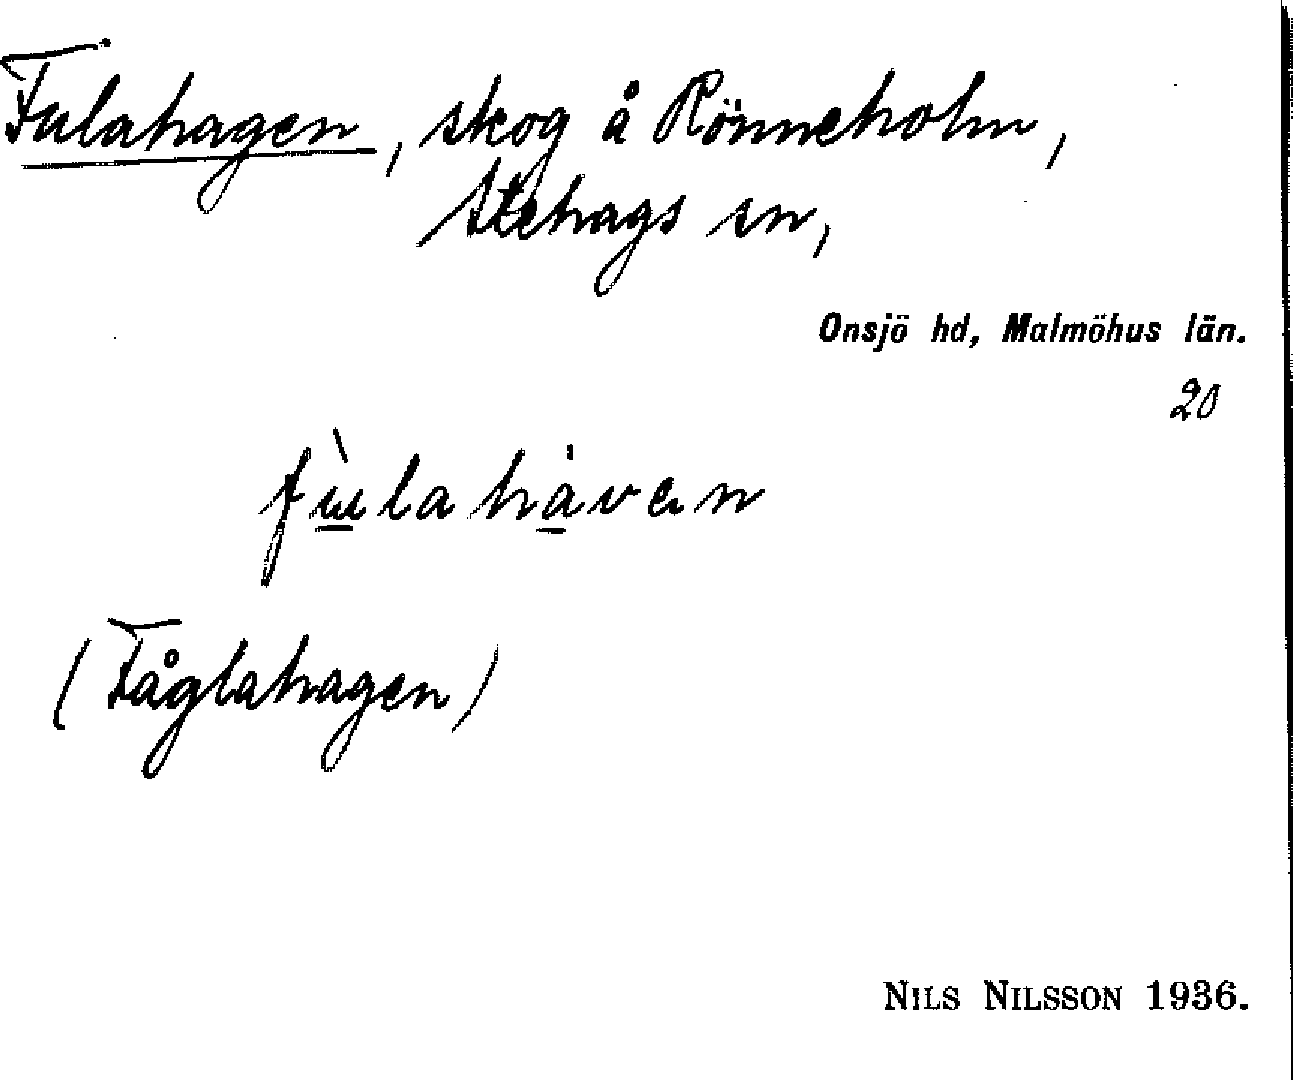 Fulahagen, skog å Rönneholm,
Stehags sn,
Onsjö hd, Malmöhus län.
20
fù̱lahȧ̱ven
(Fåglahagen)
NILS NILSSON 1936.